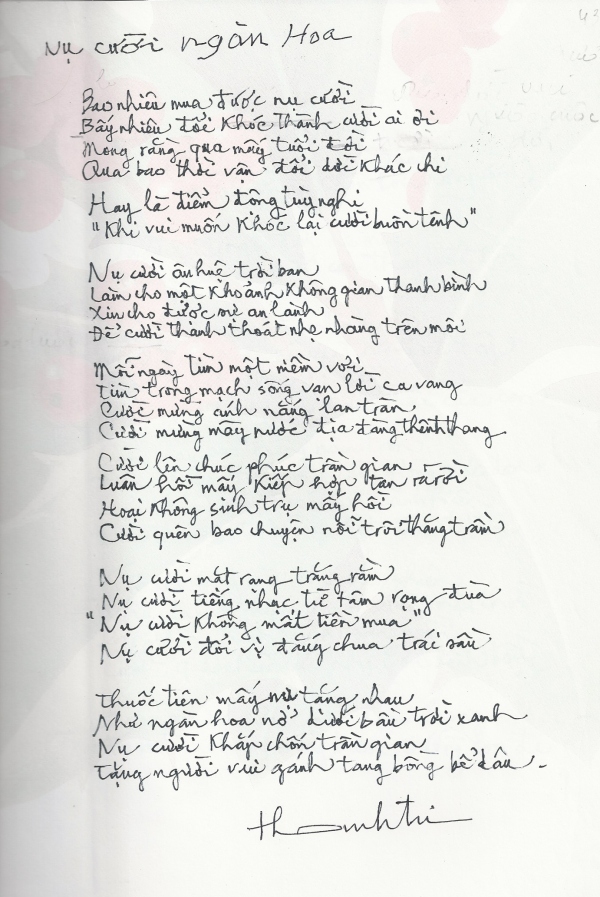 Nụ cười ngàn Hoa
Bao nhiêu mua được nụ cười
Bấy nhiêu để khóc thành cười ai ơi
Mong rằng qua mấy tuổi đời
Qua bao thời vận đổi dời khác chi
Hay là điểm đồng tùy nghi
"Khi vui muốn khóc lại cười buồn tênh"
Nụ cười ân huệ trời ban
Làm cho một khoảnh không gian thanh bình
Xin cho được sự an lành
Để cười thành thoát nhẹ nhàng trên môi
Mỗi ngày tìm một niềm vui
Tìm trong mạch sống vạn lời ca vang
Cười mừng ánh nắng lan tràn
Cười mừng mây nước địa đàng thênh thang
Cười lên chúc phúc trần gian
Luân hồi mấy kiếp hợp tan rã rời
Hoại không sinh trụ mấy hồi
Cười quên bao chuyện nổi trôi thăng trầm
Nụ cười mát rạng trăng rằm
Nụ cười tiếng nhạc từ tâm vọng đùa
"Nụ cười không mất tiền mua"
Nụ cười đổi vị đắng chua trái sầu
Thuốc tiên mấy nụ tặng nhau
Như ngàn hoa nở dưới bầu trời xanh
Nụ cười khắp chốn trần gian
Tặng người vui gánh tang bồng bể dâu.